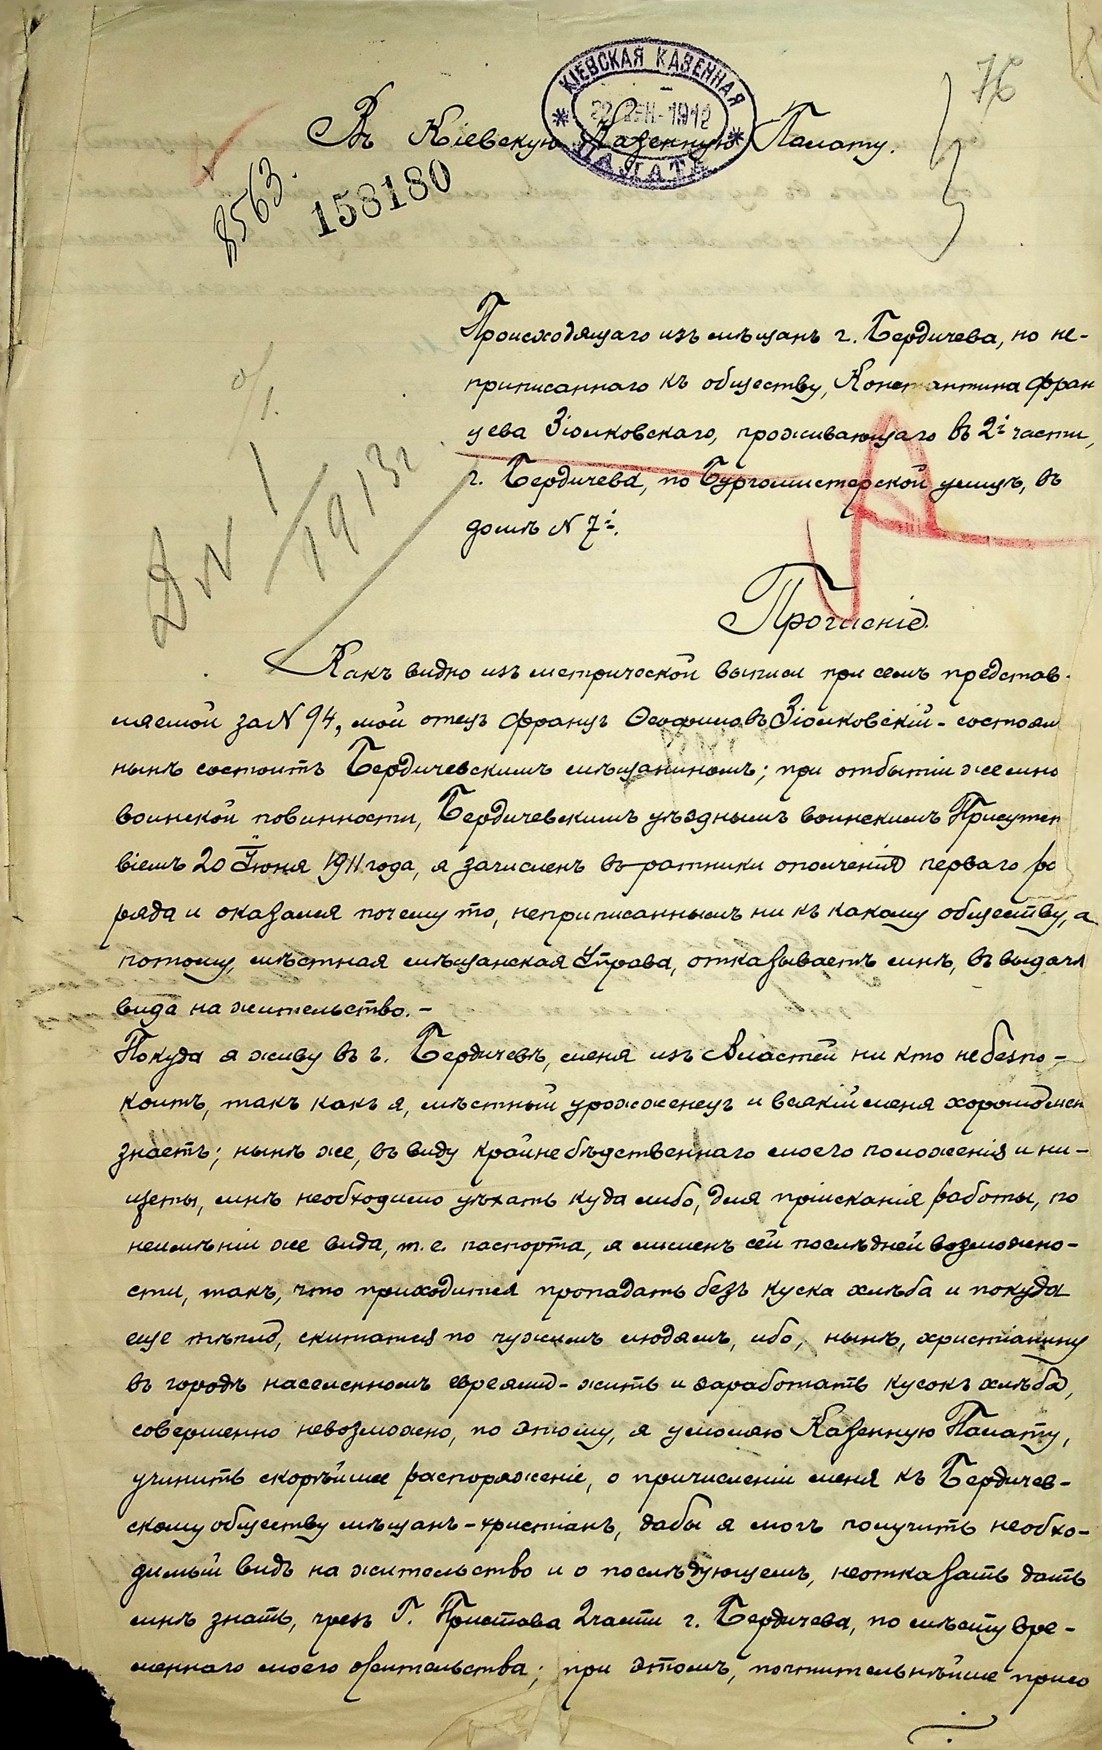 КІЕВСКАЯ КАЗЕННАЯ
1912
ПАЛАТА
Въ Кіевскую Казенную Палату.
8563.
158180
Д № 1/1913 г
Происходящаго изъ мѣщанъ г. Бердичева, но не-
приписаннаго къ обществу, Константина Фран
цева Зіомковскаго, проживающаго въ 2й части,
г. Бердичева, по Бургомистерской улицѣ, въ
домѣ № 7й.
Прошеніе.
Какъ видно изъ метрической выписи при семъ представ-
ляемой за № 94, мой отецъ Францъ Ѳеофиловъ Зіомковскій - состоял
нынѣ состоитъ Бердичевскимъ мѣщаниномъ; при отбытіи же мно
воинской повинности, Бердичевскимъ уѣзднымъ воинскимъ Присутст
віемъ 20 Іюня 1911 года, я зачисленъ въ ратники ополченія перваго ра
ряда и оказался почему то, неприписаннымъ ни къ какому обществу, а
потому, мѣстная мѣщанская Управа, отказываетъ мнѣ, въ выдачѣ
вида на жительство. -
Покуда я живу въ г. Бердичевѣ, меня изъ Властей ни кто не безпо-
коитъ, такъ какъ я, мѣстный уроженецъ и всякій меня хорошо
знаетъ; нынѣ же, въ виду крайне бѣдственнаго моего положенія и ни-
щеты, мнѣ необходимо уѣхать куда либо, для пріисканія работы, по
неимѣнію же вида, т.е. паспорта, я лишенъ сей послѣдней возможно-
сти, такъ, что приходится пропадать безъ куска хлѣба и покуда
еще тепло, скитатся по чужимъ людямъ, ибо, нынѣ, христіанину
въ городѣ населенномъ евреями - жить и заработать кусокъ хлѣба,
совершенно невозможно, по этому, я умоляю Казенную Палату,
учинить скорѣйшее распоряженіе, о причисленіи меня къ Бердичев-
скому обществу мѣщанъ - христіанъ, дабы я могъ получить необхо-
димый видъ на жительство и о послѣдующемъ, неотказать дать
мнѣ знать, чрезъ Г. Пристава 2 части г. Бердичева, по мѣсту вре-
меннаго моего жительства; при этомъ, почтительнѣйше присо